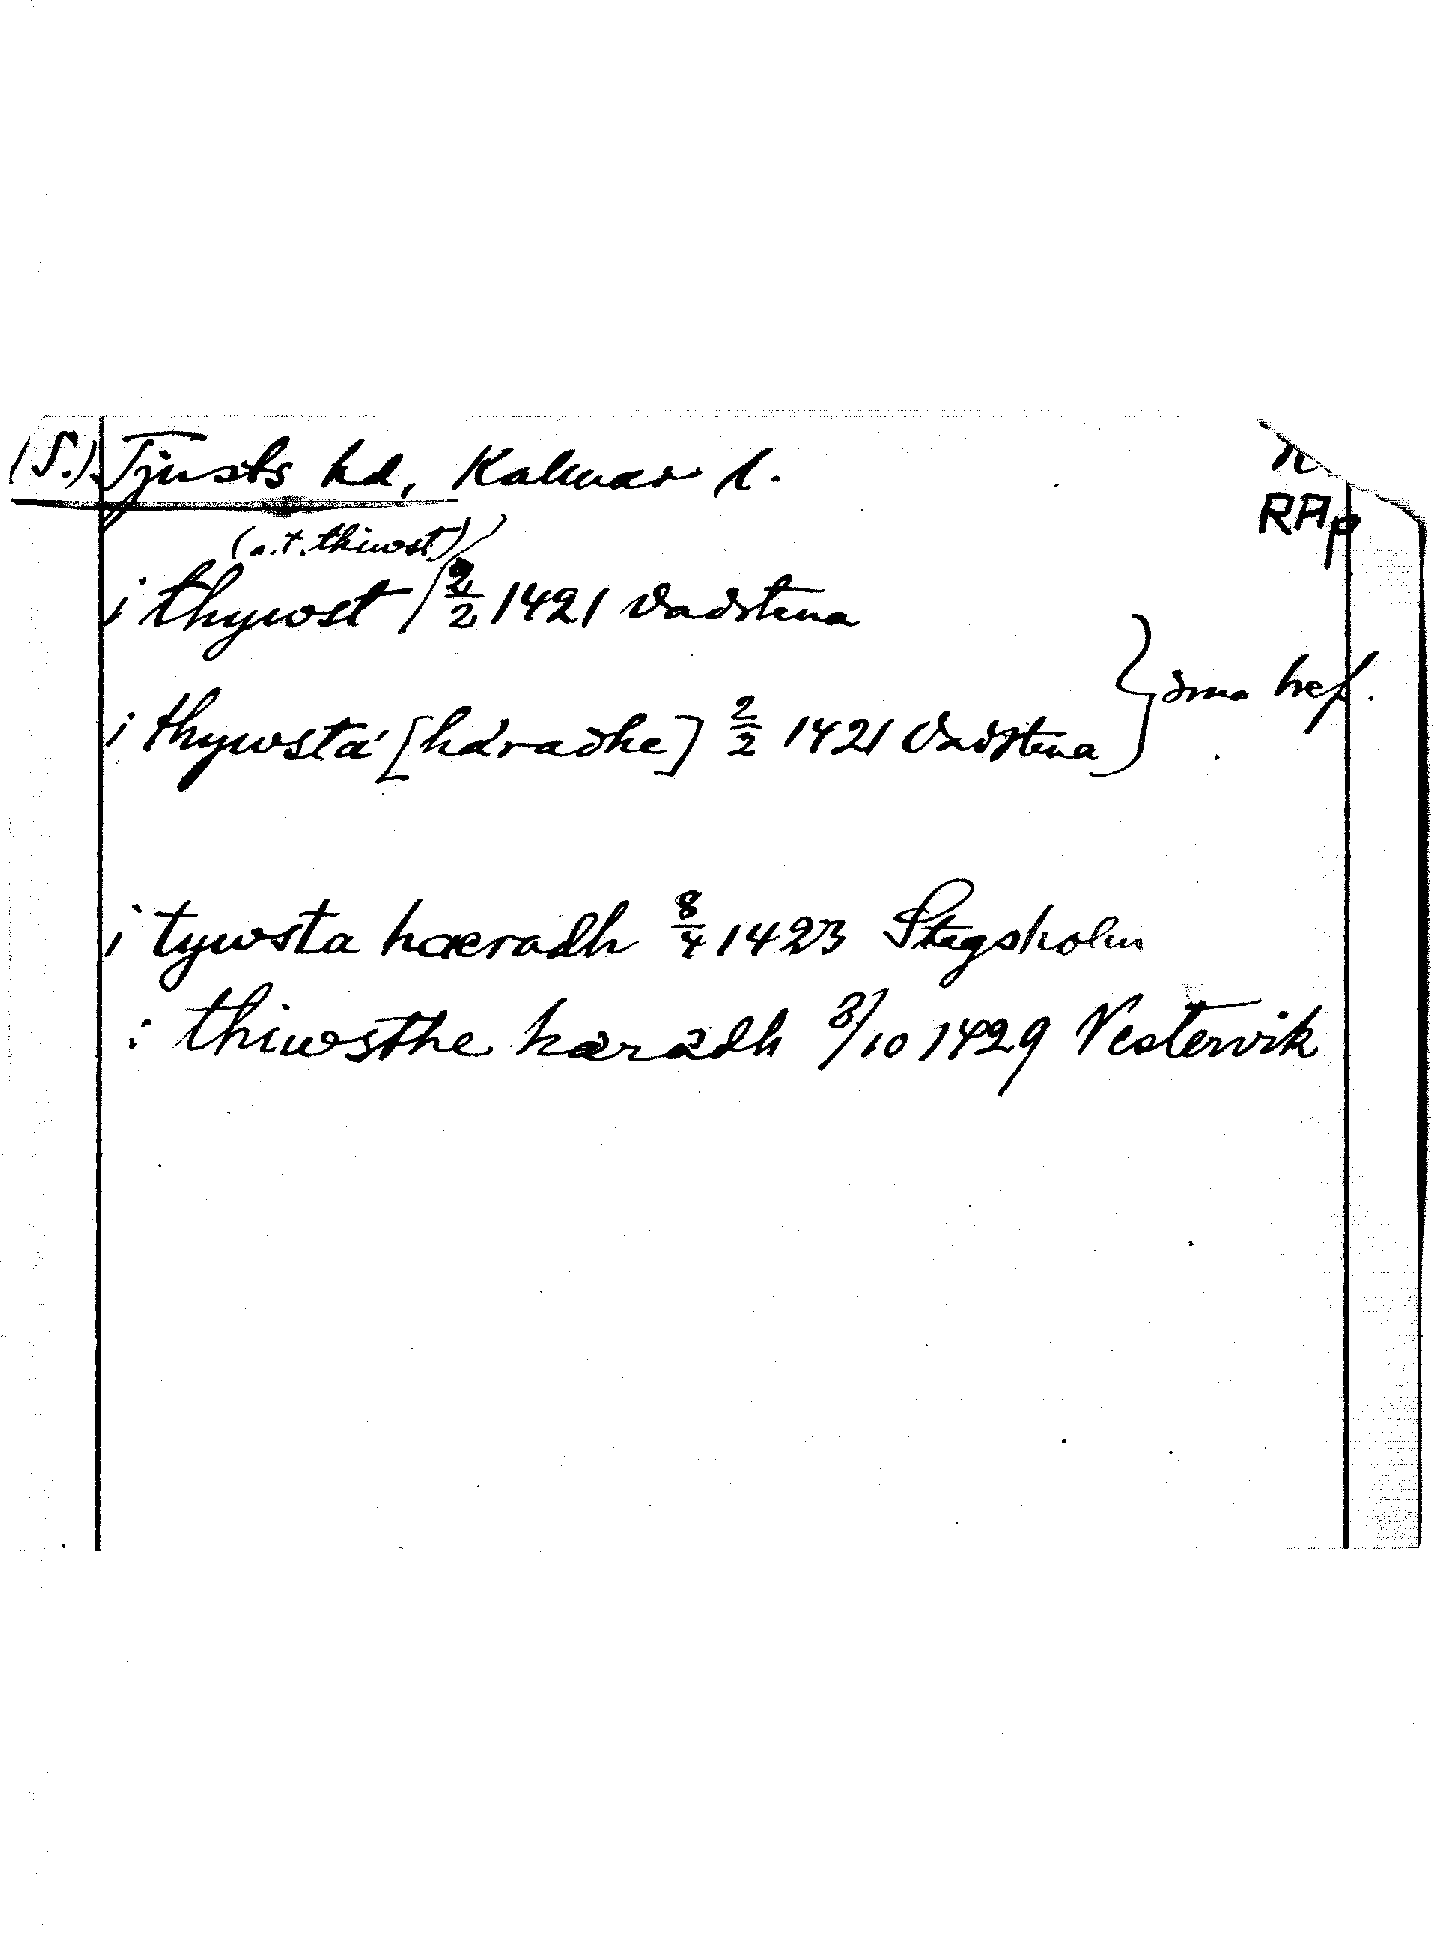 (S.) Tjusts hd, Kalmar l.
RAp
(a.t. thiwst)
i thywst 2/2 1421 Vadstena
i thywsta [háradhe] 2/2 1421 Vadstena } sma bref.
i tywsta hæradh 8/4 1423 Stegsholm
i thiwsthe hæradh 3/10 1429 Vestervik